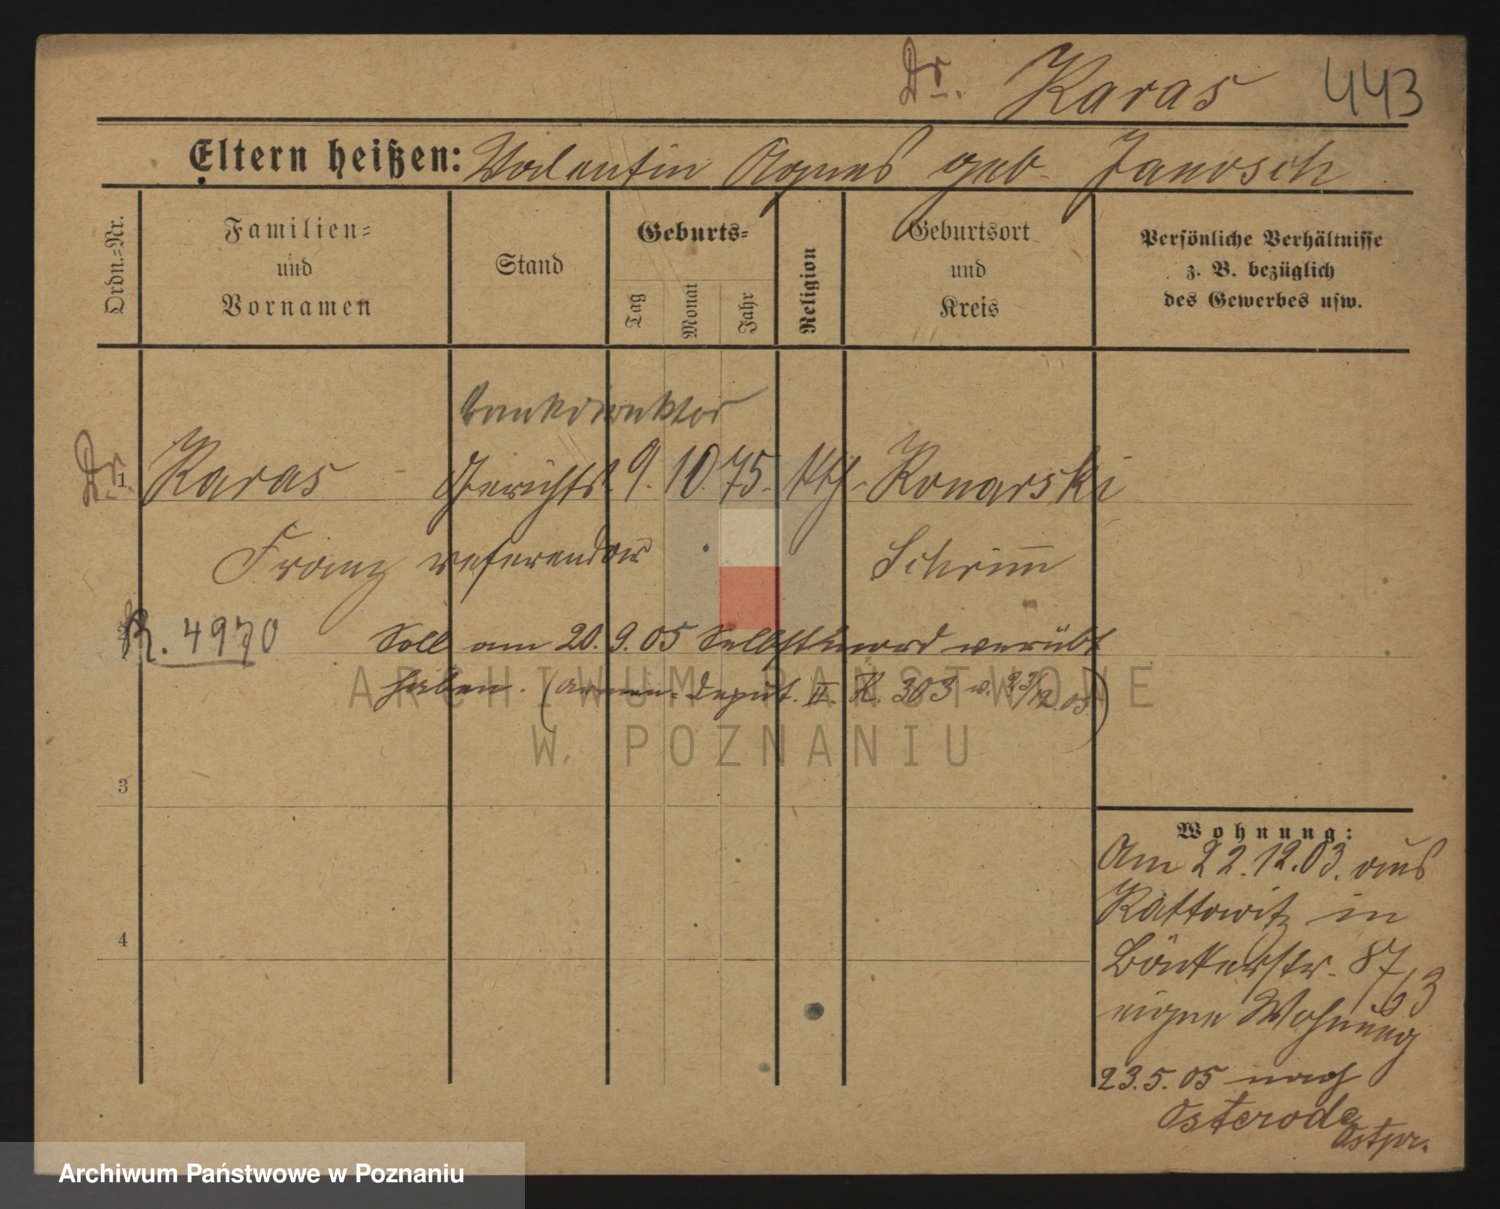 Dr. Karas 443
Eltern heißen: Valentin Agnes geb. Janosch
Ordn.-Nr.
Familien-
und
Vornamen
Stand
Geburts-
Tag
Monat
Jahr
Religion
Geburtsort
und
Kreis
Persönliche Verhältnisse
z. B. bezüglich
des Gewerbes usw.
Bankdirektor
Dr. 1 Karas Gerichts- 9. 10. 75. kth. Konarski
Franz referendar Schrimm
2 R. 4970 Soll am 20. 9. 05 Selbstmord verübt
haben. (Armen-Deput. II. K. 303 v. 23/12 05)
3
4
Wohnung:
Am 22.12.03. aus
Kattowitz in
87/63
eigne Wohnung
23.5.05 nach
Osterode
Ostpr.
ARCHIWUM PAŃSTWOWE
W POZNANIU
Archiwum Państwowe w Poznaniu